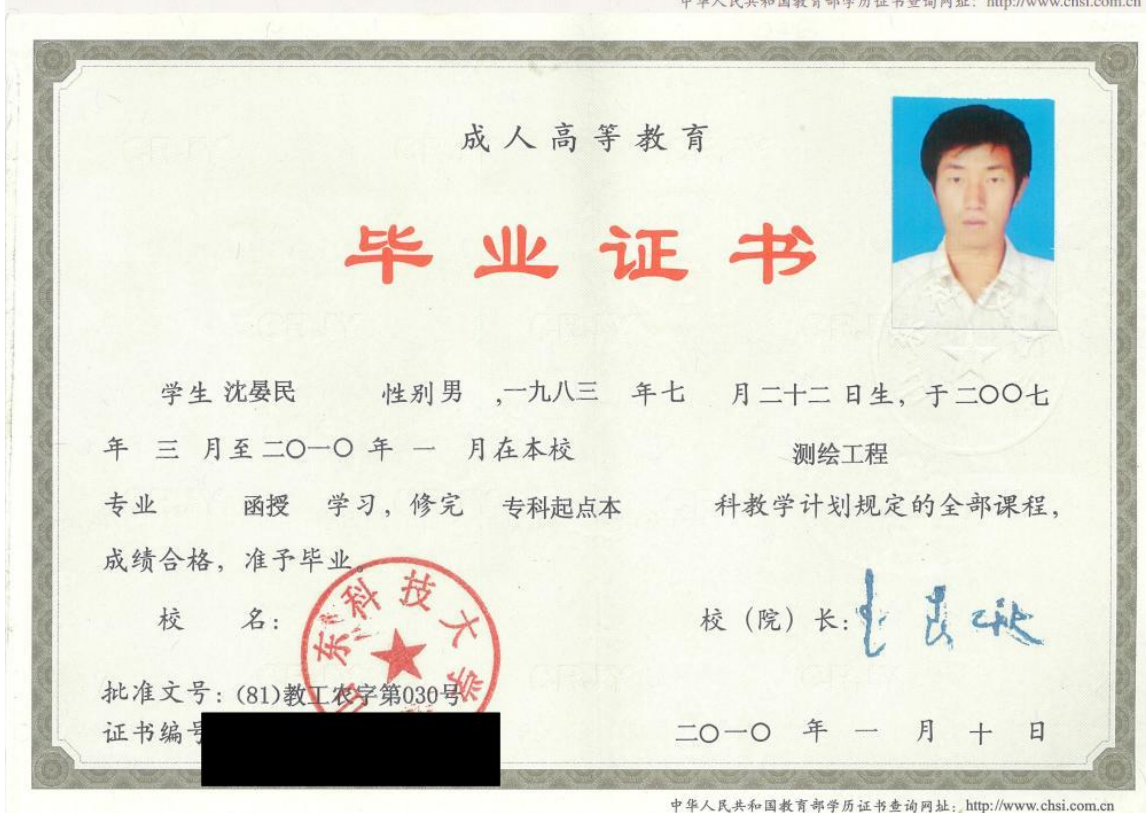 中华人民共和国教育部学历证书查询网址: http://www.chsi.com.cn
成人高等教育
毕业证书
学生 沈晏民 性别 男 ,一九八三 年七 月二十二 日生, 于二〇〇七
年 三 月至 二〇一〇 年 一 月在本校 测绘工程
专业 函授 学习, 修完 专科起点本 科教学计划规定的全部课程,
成绩合格, 准予毕业。
校 名: 山东科技大学 校(院)长:
批准文号: (81)教工农字第030号
证书编号 二〇一〇 年 一 月 十 日
中华人民共和国教育部学历证书查询网址: http://www.chsi.com.cn